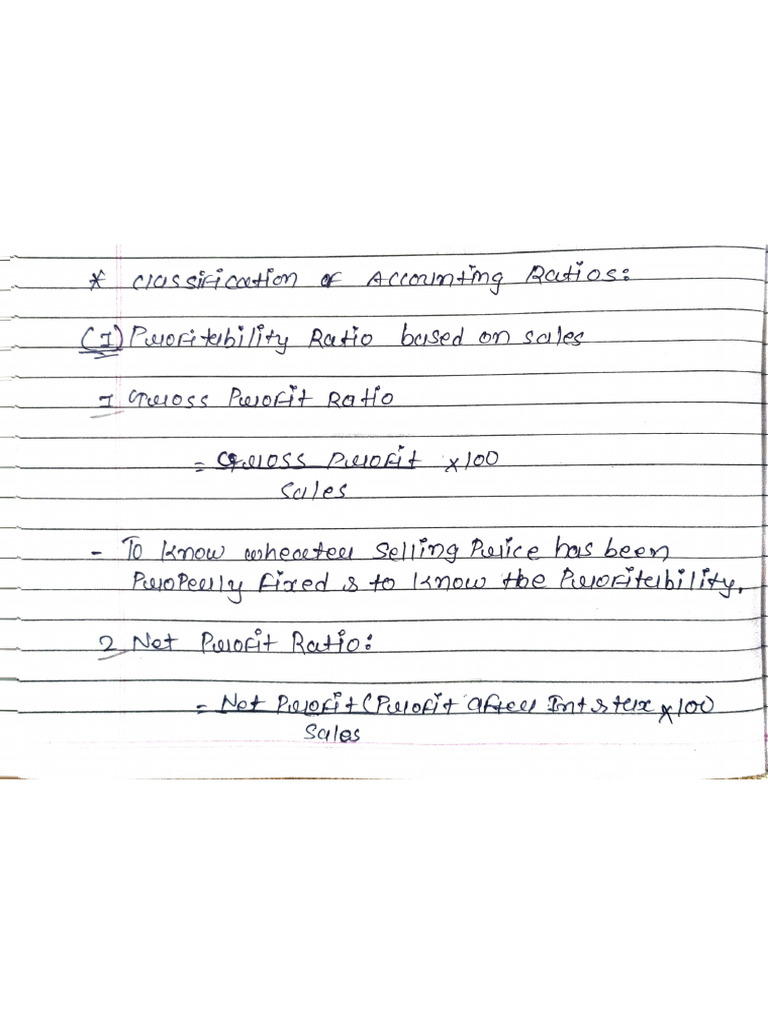 * Classification of Accounting Ratios:
(I) Profitability Ratio based on sales
1 Gross Profit Ratio
= Gross Profit x100
Sales
- To know wheater Selling Price has been
Properly fixed & to know the Profitability.
2 Net Profit Ratio:
= Net Profit (Profit after Int & tax x100
Sales